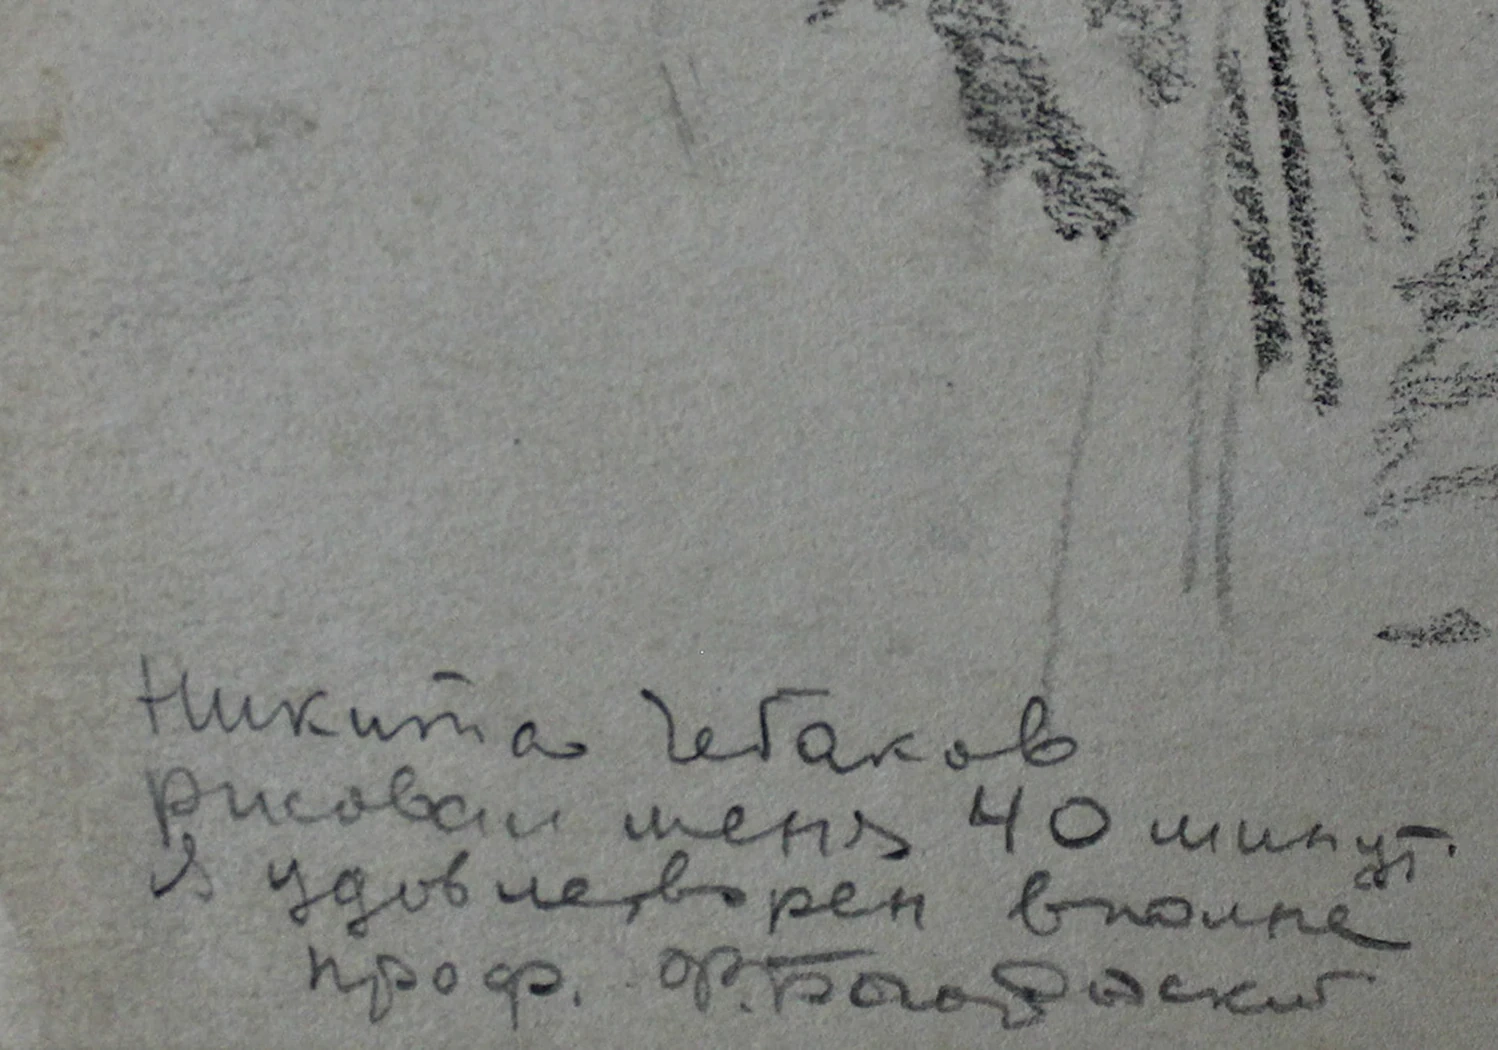 Никита Чебаков
рисовал меня 40 минут.
Я удовлетворен вполне
проф. Ф. Богородский